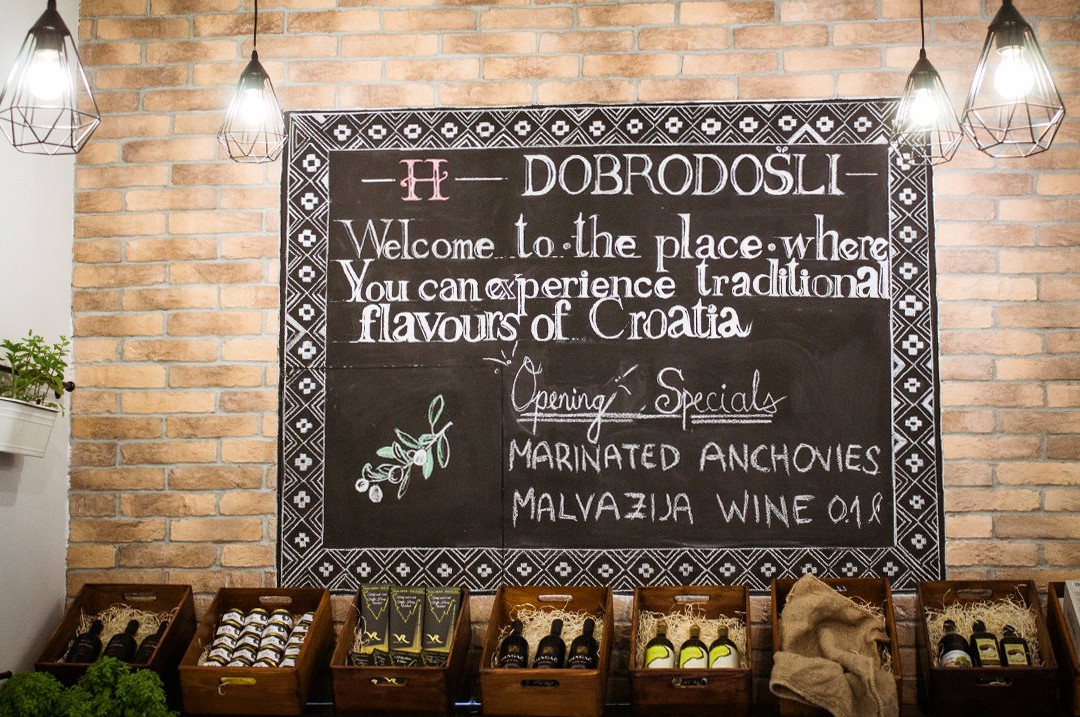 H DOBRODOŠLI
Welcome to · the place · where
You can experience traditional
flavours of Croatia
Opening Specials
MARINATED ANCHOVIES
MALVAZIJA WINE 0.1 l